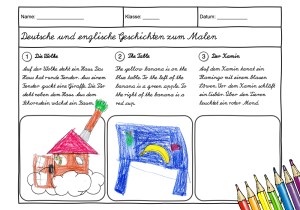 Name:
Klasse:
Datum:
Deutsche und englische Geschichten zum Malen
1 Die Wolke
Auf der Wolke steht ein Haus. Das
Haus hat runde Fenster. Aus einem
Fenster guckt eine Giraffe. Die Tür
steht neben dem Haus. Aus dem
Schornstein wächst ein Baum.
2 The Table
The yellow banana is on the
blue table. To the left of the
banana is a green apple. To
the right of the banana is a
red cup.
3 Der Kamin
Auf dem Kamin steht ein
Flamingo mit einem blauen
Ohren. Vor dem Kamin schläft
ein Eisbär. Über den Tieren
leuchtet ein roter Mond.